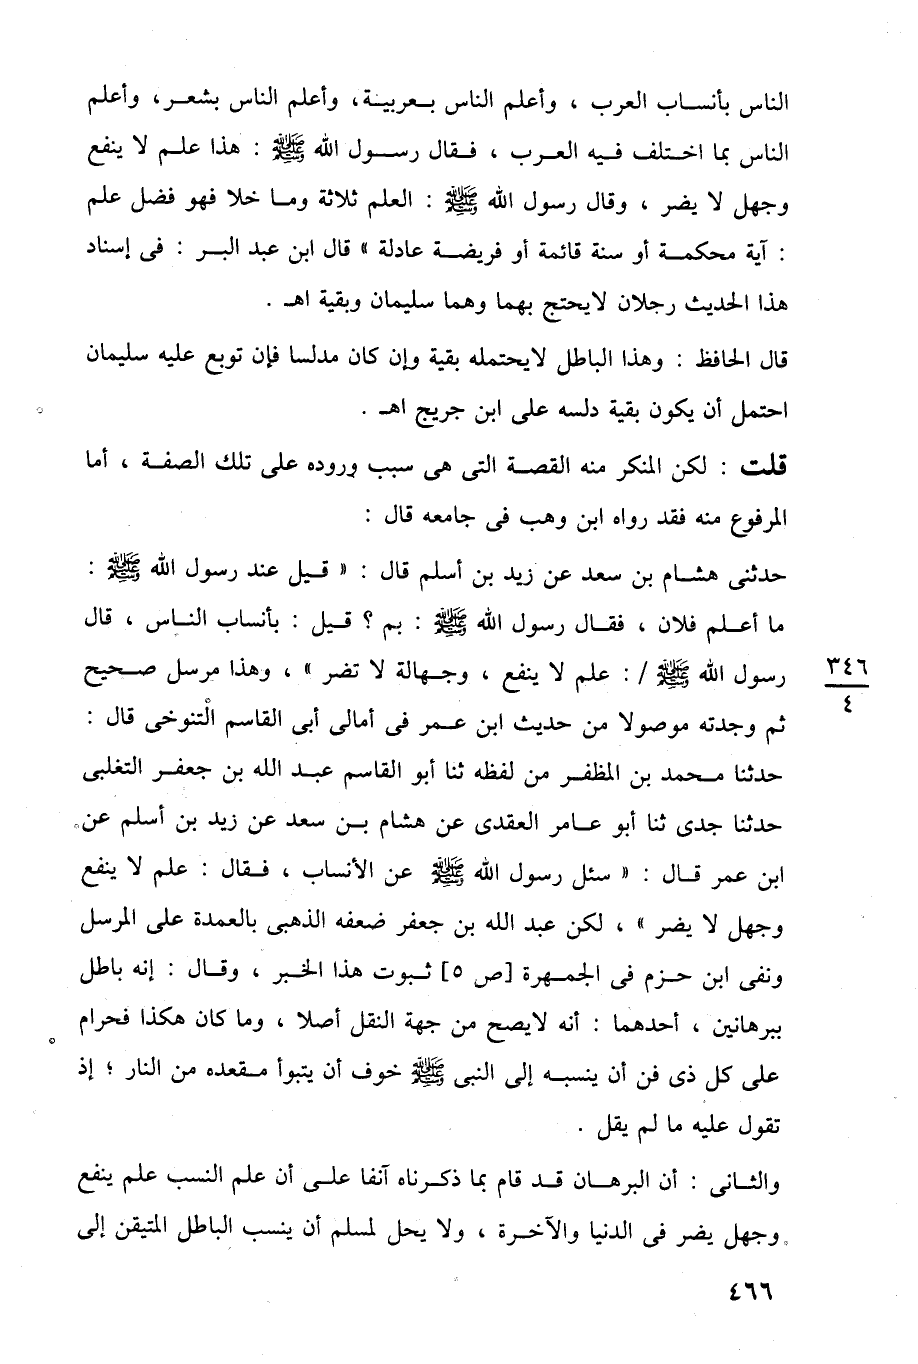 الناس بأنساب العرب ، وأعلم الناس بعربية، وأعلم الناس بشعر، وأعلم
الناس بما اختلف فيه العرب ، فقال رسول الله ﷺ : هذا علم لا ينفع
وجهل لا يضر ، وقال رسول الله ﷺ : العلم ثلاثة وما خلا فهو فضل علم
: آية محكمة أو سنة قائمة أو فريضة عادلة » قال ابن عبد البر : فى إسناد
هذا الحديث رجلان لايحتج بهما وهما سليمان وبقية اهـ .
قال الحافظ : وهذا الباطل لايحتمله بقية وإن كان مدلسا فإن توبع عليه سليمان
احتمل أن يكون بقية دلسه على ابن جريج اهـ .
قلت : لكن المنكر منه القصة التى هى سبب وروده على تلك الصفة ، أما
المرفوع منه فقد رواه ابن وهب فى جامعه قال :
حدثنى هشام بن سعد عن زيد بن أسلم قال : « قيل عند رسول الله ﷺ :
ما أعلم فلان ، فقال رسول الله ﷺ : بم ؟ قيل : بأنساب الناس ، قال
رسول الله ﷺ / : علم لا ينفع ، وجهالة لا تضر » ، وهذا مرسل صحيح
٣٤٦
٤
ثم وجدته موصولا من حديث ابن عمر فى أمالى أبى القاسم التنوخى قال :
حدثنا محمد بن المظفر من لفظه ثنا أبو القاسم عبد الله بن جعفر التغلبى
حدثنا جدى ثنا أبو عامر العقدى عن هشام بن سعد عن زيد بن أسلم عن
ابن عمر قال : « سئل رسول الله ﷺ عن الأنساب ، فقال : علم لا ينفع
وجهل لا يضر » ، لكن عبد الله بن جعفر ضعفه الذهبى بالعمدة على المرسل
ونفى ابن حزم فى الجمهرة [ص ٥] ثبوت هذا الخبر ، وقال : إنه باطل
ببرهانين ، أحدهما : أنه لايصح من جهة النقل أصلا ، وما كان هكذا فحرام
على كل ذى فن أن ينسبه إلى النبى ﷺ خوف أن يتبوأ مقعده من النار ؛ إذ
تقول عليه ما لم يقل .
والثانى : أن البرهان قد قام بما ذكرناه آنفا على أن علم النسب علم ينفع
وجهل يضر فى الدنيا والآخرة ، ولا يحل لمسلم أن ينسب الباطل المتيقن إلى
٤٦٦